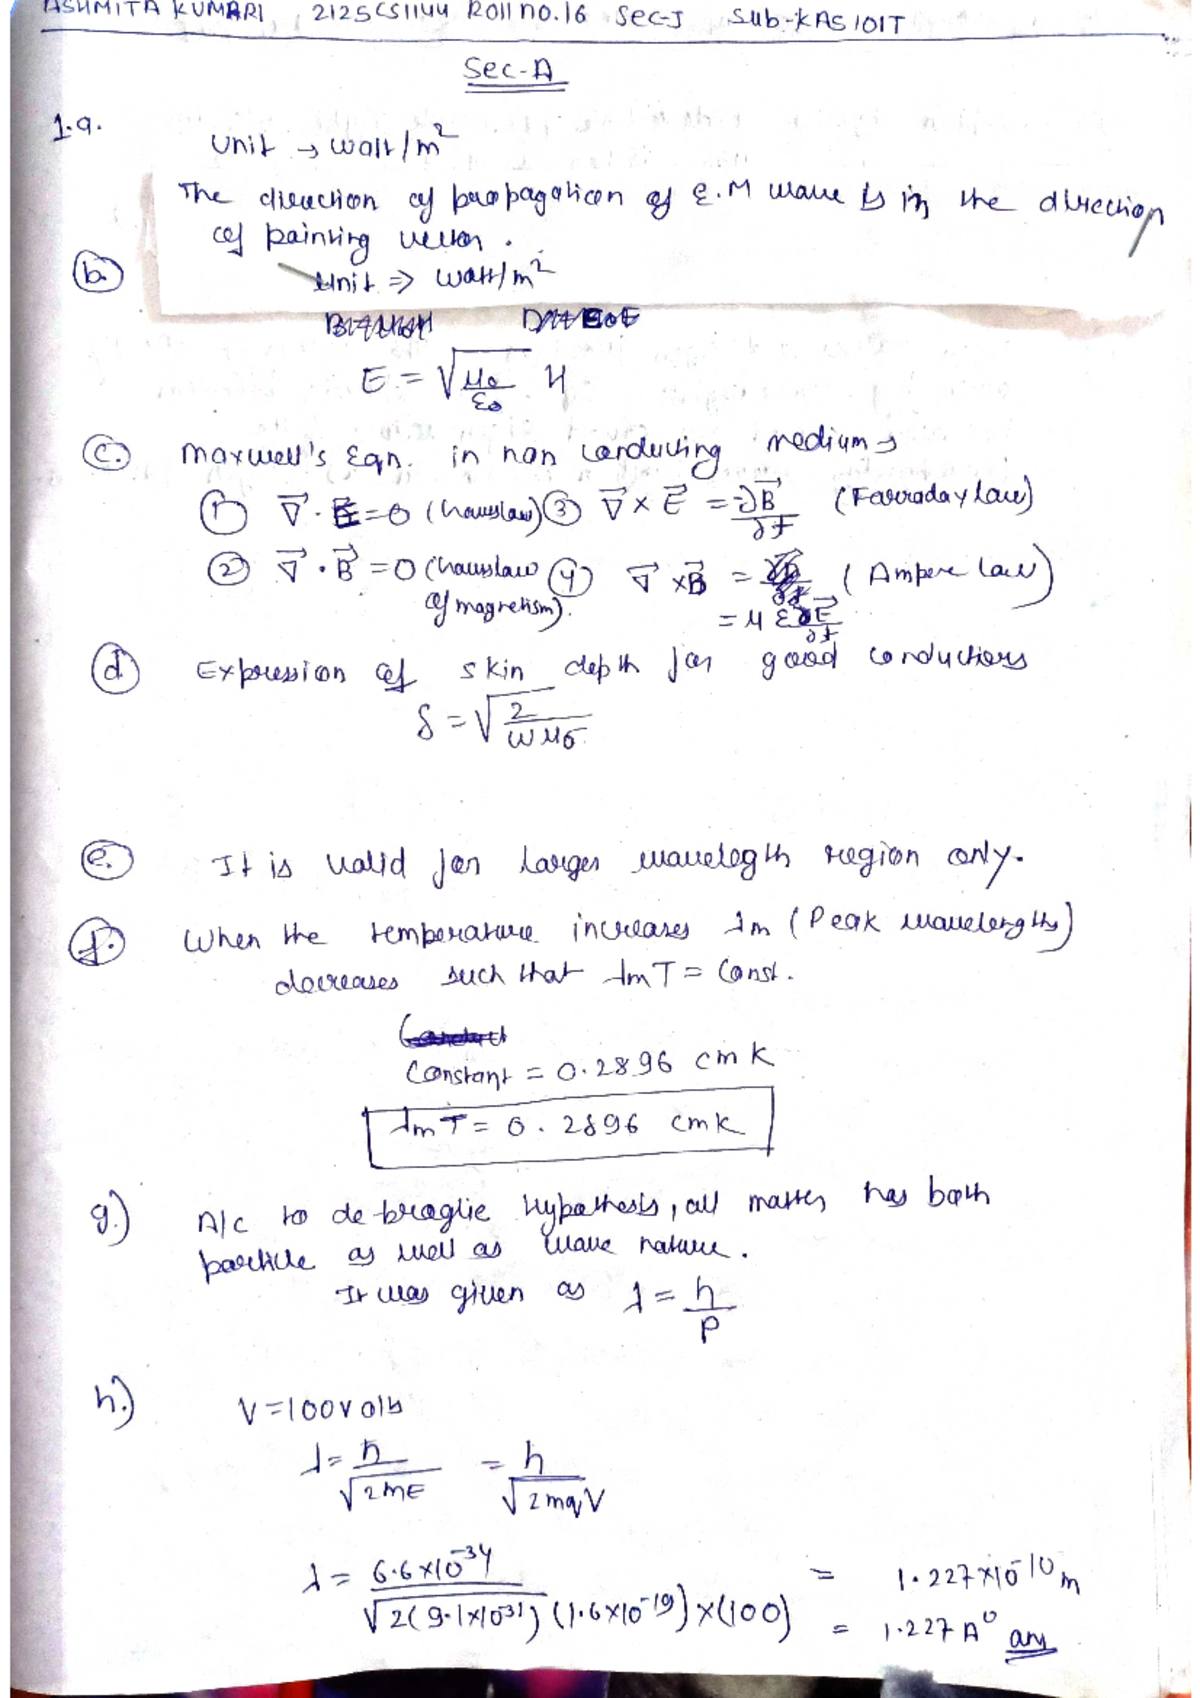 ASHMITA KUMARI 2125CS1144 Roll no.16 Sec-J Sub-KAS101T
Sec-A
1.a. Unit → watt/m²
The direction of propagation of E.M wave is in the direction
of pointing vector.
(b.) Unit ⇒ watt/m²
E = √(μ₀/ε₀) H
(c.) Maxwell's Eqn. in non conducting medium →
① ∇⃗ · E⃗ = 0 (Gauss law) ③ ∇⃗ × E⃗ = -∂B⃗/∂t (Farraday law)
② ∇⃗ · B⃗ = 0 (Gauss law of magnetism). ④ ∇⃗ × B⃗ = (Ampere law)
= μ ε ∂E⃗/∂t
(d) Expression of skin depth for good conductors
δ = √(2/ωμσ)
(e.) It is valid for larger wavelegth region only.
(f.) When the temperature increases λm (Peak wavelengths)
decreases such that λmT = Const.
Constant = 0.2896 cm K
λmT = 0.2896 cmk
g.) A/c to de-broglie hypothesis, all matter has both
particle as well as wave nature.
It was given as λ = h/P
h.) V = 100 volts
λ = h/√2mE = h/√2mqV
λ = 6.6×10⁻³⁴/√2(9.1×10⁻³¹)(1.6×10⁻¹⁹)×(100) = 1.227×10⁻¹⁰m
= 1.227 A⁰ ans